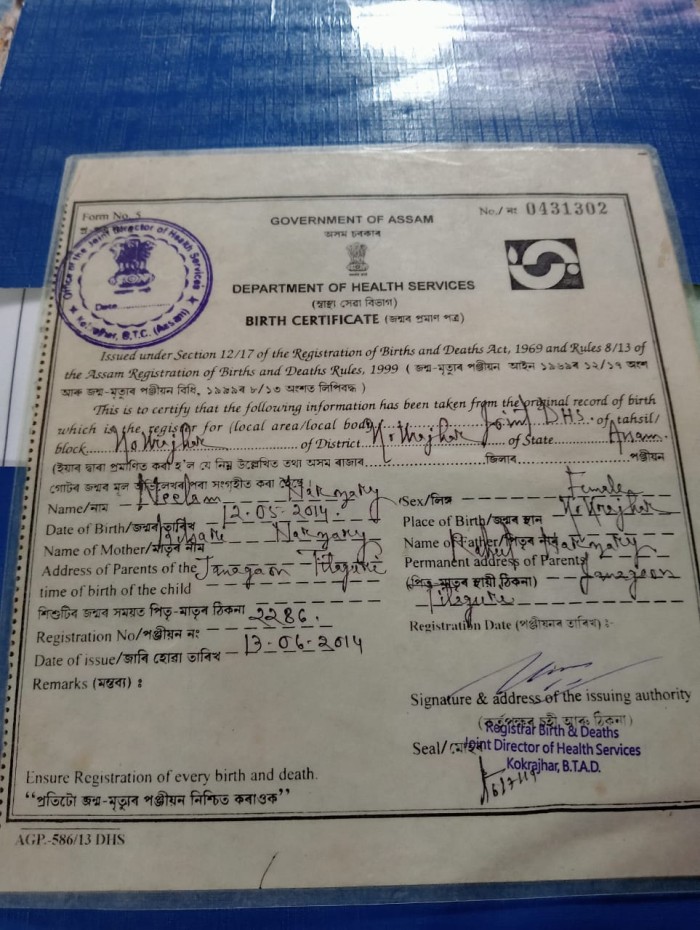 Form No. 5
No./নং 0431302
Office of the Joint Director of Health Services
Date
Kokrajhar, B.T.C. (Assam)
GOVERNMENT OF ASSAM
অসম চৰকাৰ
DEPARTMENT OF HEALTH SERVICES
(স্বাস্থ্য সেৱা বিভাগ)
BIRTH CERTIFICATE (জন্মৰ প্ৰমাণ পত্ৰ)
Issued under Section 12/17 of the Registration of Births and Deaths Act, 1969 and Rules 8/13 of
the Assam Registration of Births and Deaths Rules, 1999 ( জন্ম-মৃত্যুৰ পঞ্জীয়ন আইন ১৯৬৯ৰ ১২/১৭ অংশ
আৰু জন্ম-মৃত্যুৰ পঞ্জীয়ন বিধি, ১৯৯৯ৰ ৮/১৩ অংশত লিপিবদ্ধ )
This is to certify that the following information has been taken from the original record of birth
which is the register for (local area/local body) Joint DHS. of tahsil/
block Kokrajhar of District Kokrajhar of State Assam.
(ইয়াৰ দ্বাৰা প্ৰমাণিত কৰা হ'ল যে নিম্ন উল্লেখিত তথ্য অসম ৰাজ্যৰ জিলাৰ পঞ্জীয়ন
গোটৰ জন্মৰ মূল সংগৃহীত কৰা হৈছে)
Name/নাম Neelam Narzary
Sex/লিঙ্গ Female
Date of Birth/জন্মৰ তাৰিখ 12-05-2014.
Place of Birth/জন্মৰ স্থান Kokrajhar
Name of Mother/মাতৃৰ নাম Narzary
Name of Father/পিতৃৰ নাম Narzary
Address of Parents of the Janagaon Titaguri
time of birth of the child
Permanent address of Parents
(পিতৃ-মাতৃৰ স্থায়ী ঠিকনা) Janagaon
Titaguri
শিশুটিৰ জন্মৰ সময়ত পিতৃ-মাতৃৰ ঠিকনা
Registration No/পঞ্জীয়ন নং 2286.
Registration Date (পঞ্জীয়নৰ তাৰিখ) :-
Date of issue/জাৰি হোৱা তাৰিখ 13-06-2014
Remarks (মন্তব্য) :
Signature & address of the issuing authority
(কৰ্তৃপক্ষৰ চহী আৰু ঠিকনা)
Seal/মোহৰ
Registrar Birth & Deaths
Joint Director of Health Services
Kokrajhar, B.T.A.D.
Ensure Registration of every birth and death.
“প্ৰতিটো জন্ম-মৃত্যুৰ পঞ্জীয়ন নিশ্চিত কৰাওক”
AGP.-586/13 DHS